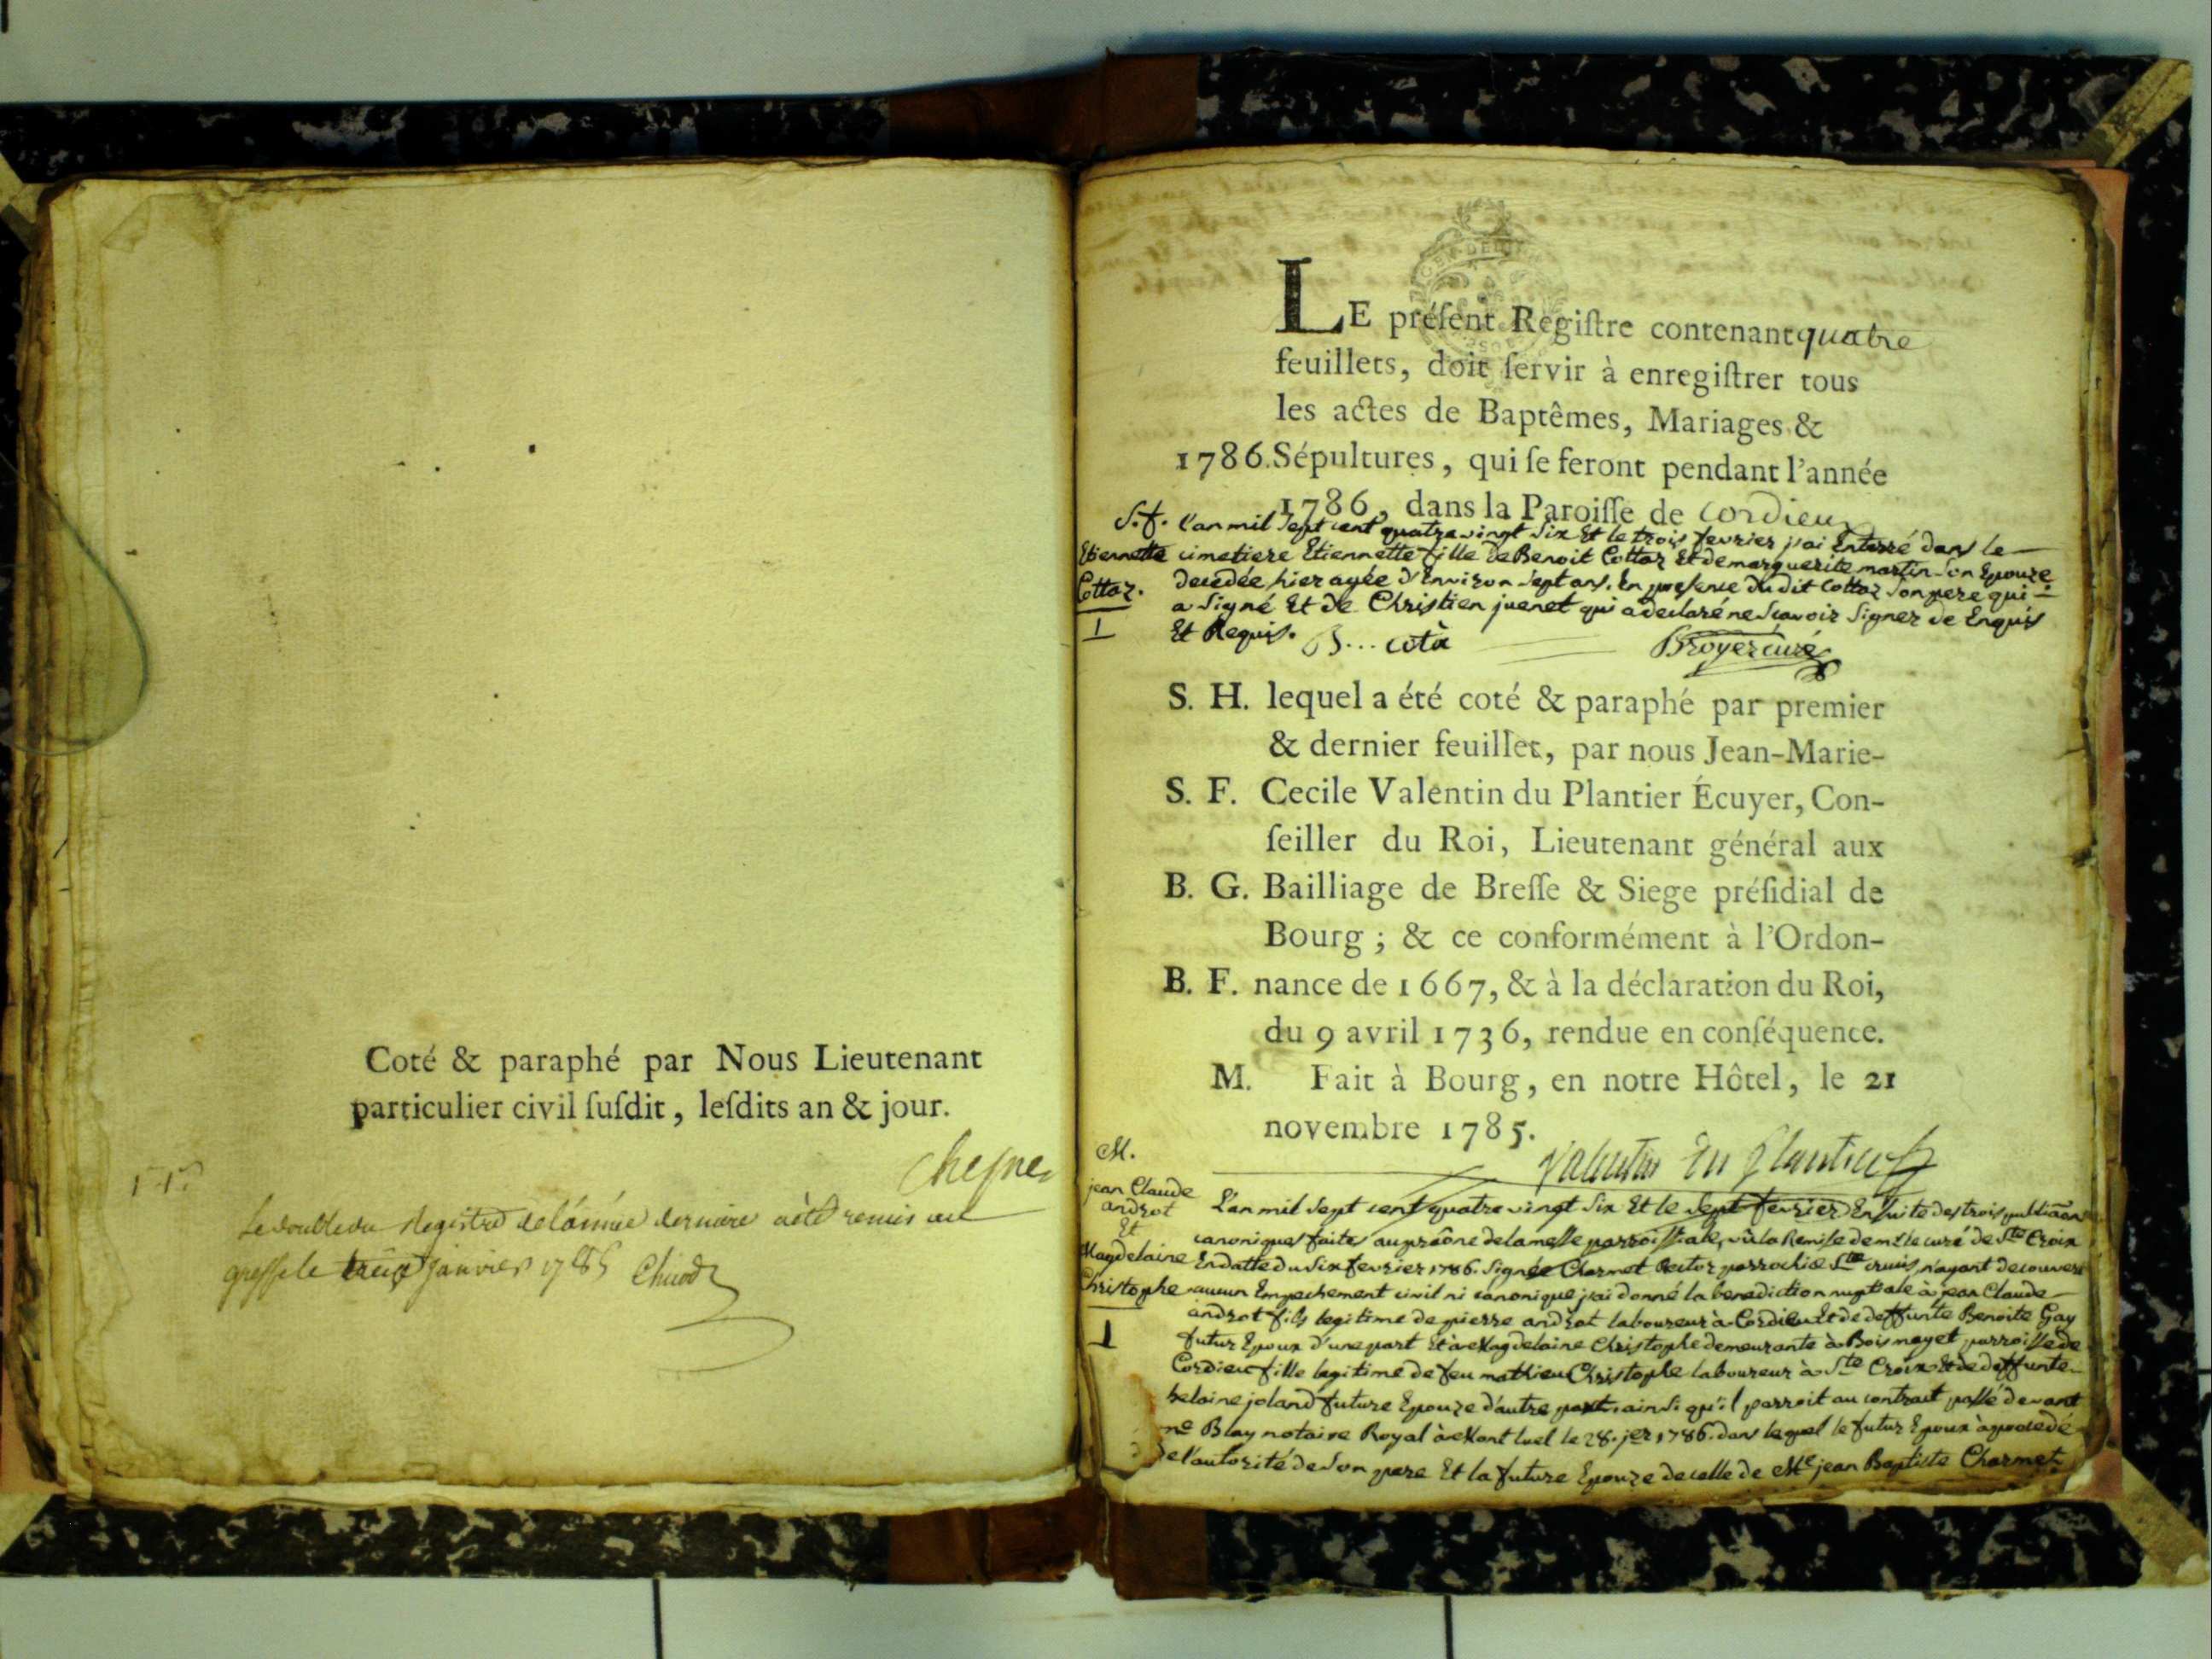 Coté & paraphé par Nous Lieutenant
particulier civil ſuſdit, leſdits an & jour.
Le double du Registre de l'année derniere a été remis au
greffe le janvier 1785
LE préſent Regiſtre contenant quatre
feuillets, doit ſervir à enregiſtrer tous
les actes de Baptêmes, Mariages &
1786. Sépultures, qui ſe feront pendant l'année
1786, dans la Paroiſſe de Cordieux
S. f. L'an mil Sept cent quatre vingt Six Et le trois fevrier j'ai Enterré dans le
Etiennette cimetiere Etiennette fille de Benoit Cottaz Et de marguerite martin Son Epouze
Cottaz. decedée hier agée d'Environ Sept ans. En presence du dit Cottaz Son pere qui
a Signé Et de Christien juenet qui a declaré ne Scavoir Signer de Enquis
1 Et Requis. B... cotà Broyer curé
S. H. lequel a été coté & paraphé par premier
& dernier feuillet, par nous Jean-Marie-
S. F. Cecile Valentin du Plantier Écuyer, Con-
ſeiller du Roi, Lieutenant général aux
B. G. Bailliage de Breſſe & Siege préſidial de
Bourg ; & ce conformément à l'Ordon-
B. F. nance de 1667, & à la déclaration du Roi,
du 9 avril 1736, rendue en conſéquence.
M. Fait à Bourg, en notre Hôtel, le 21
novembre 1785.
Valentin Du Plantier
M.
jean Claude
androt
Et
Magdelaine
Christophe
1
L'an mil Sept cent quatre vingt Six Et le Sept fevrier Ensuite des trois
canoniques faites au prône de la messe parroissiale, vû la Remise de mr le curé de Ste Croix
En datte du Six fevrier 1786. Signée Charmet Rector parrochiæ Stæ crucis n'ayant decouvert
aucun Empechement civil ni canonique j'ai donné la benediction nuptiale à jean Claude
androt fils legitime de pierre androt laboureur à Cordieu Et de deffunte Benoite Gay
futur Epoux d'une part Et à Magdelaine Christophe demeurante à Bois mayet parroisse de
Cordieu fille legitime de feu mathieu Christophe laboureur à Ste Croix Et de deffunte
helaine joland future Epouze d'autre part. ainsi qu'il parroit au contract passé devant
me Blay notaire Royal à Montluel le 28. jer 1786. dans lequel le futur Epoux à procedé
de l'autorité de Son pere Et la future Epouze de celle de Mre jean Baptiste Charmet